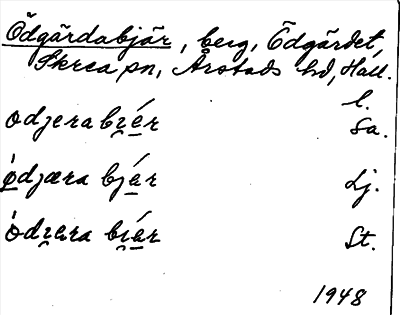 Ödgärdabjär, berg, Ödgärdet,
Skrea sn, Årstads hd, Hall.
l.
odjerabi̯ér Sa.
ó̱djæra bjá̱r Lj.
ódi̯ɛra bi̯ér St.
1948